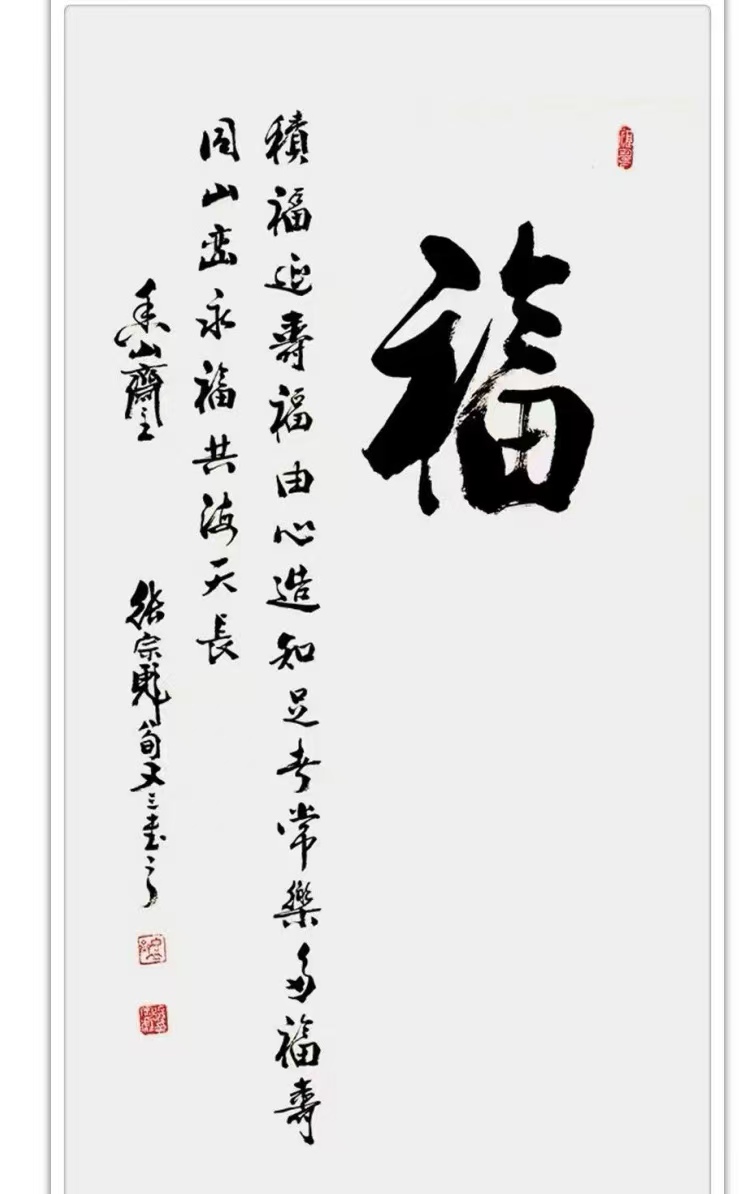 福
積福迎壽福由心造知足者常樂多福壽
同山巒永福共海天長
香山齋主
張宗彪旬又三書之